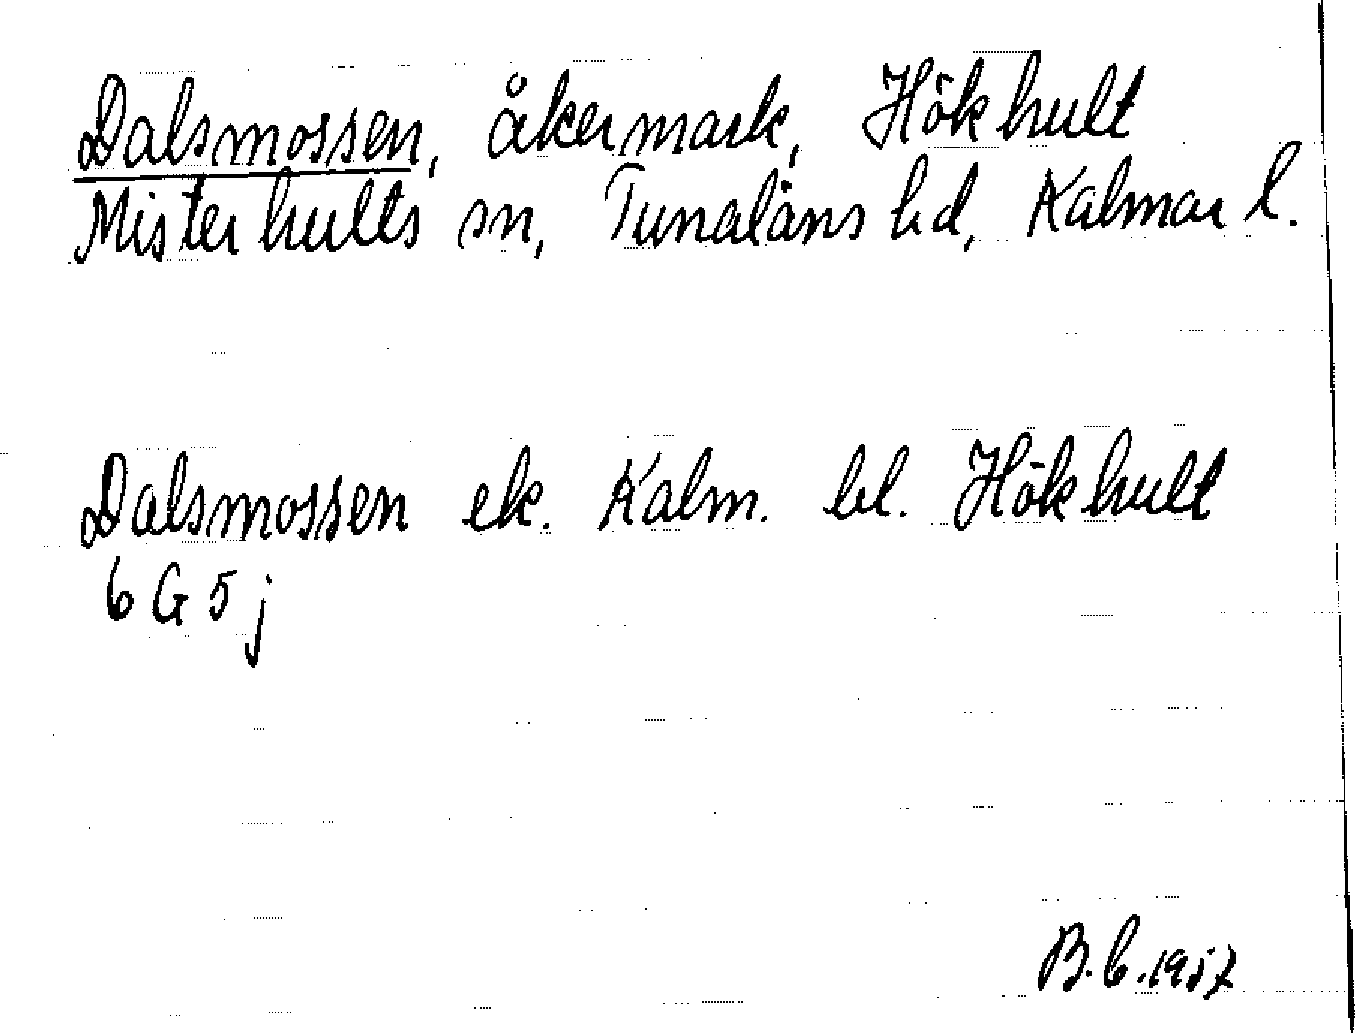 Dalsmossen, åkermark, Hökhult
Misterhults sn, Tunaläns hd, Kalmar l.
Dalsmossen ek. Kalm. bl. Hökhult
6 G 5 j
B.b.1957